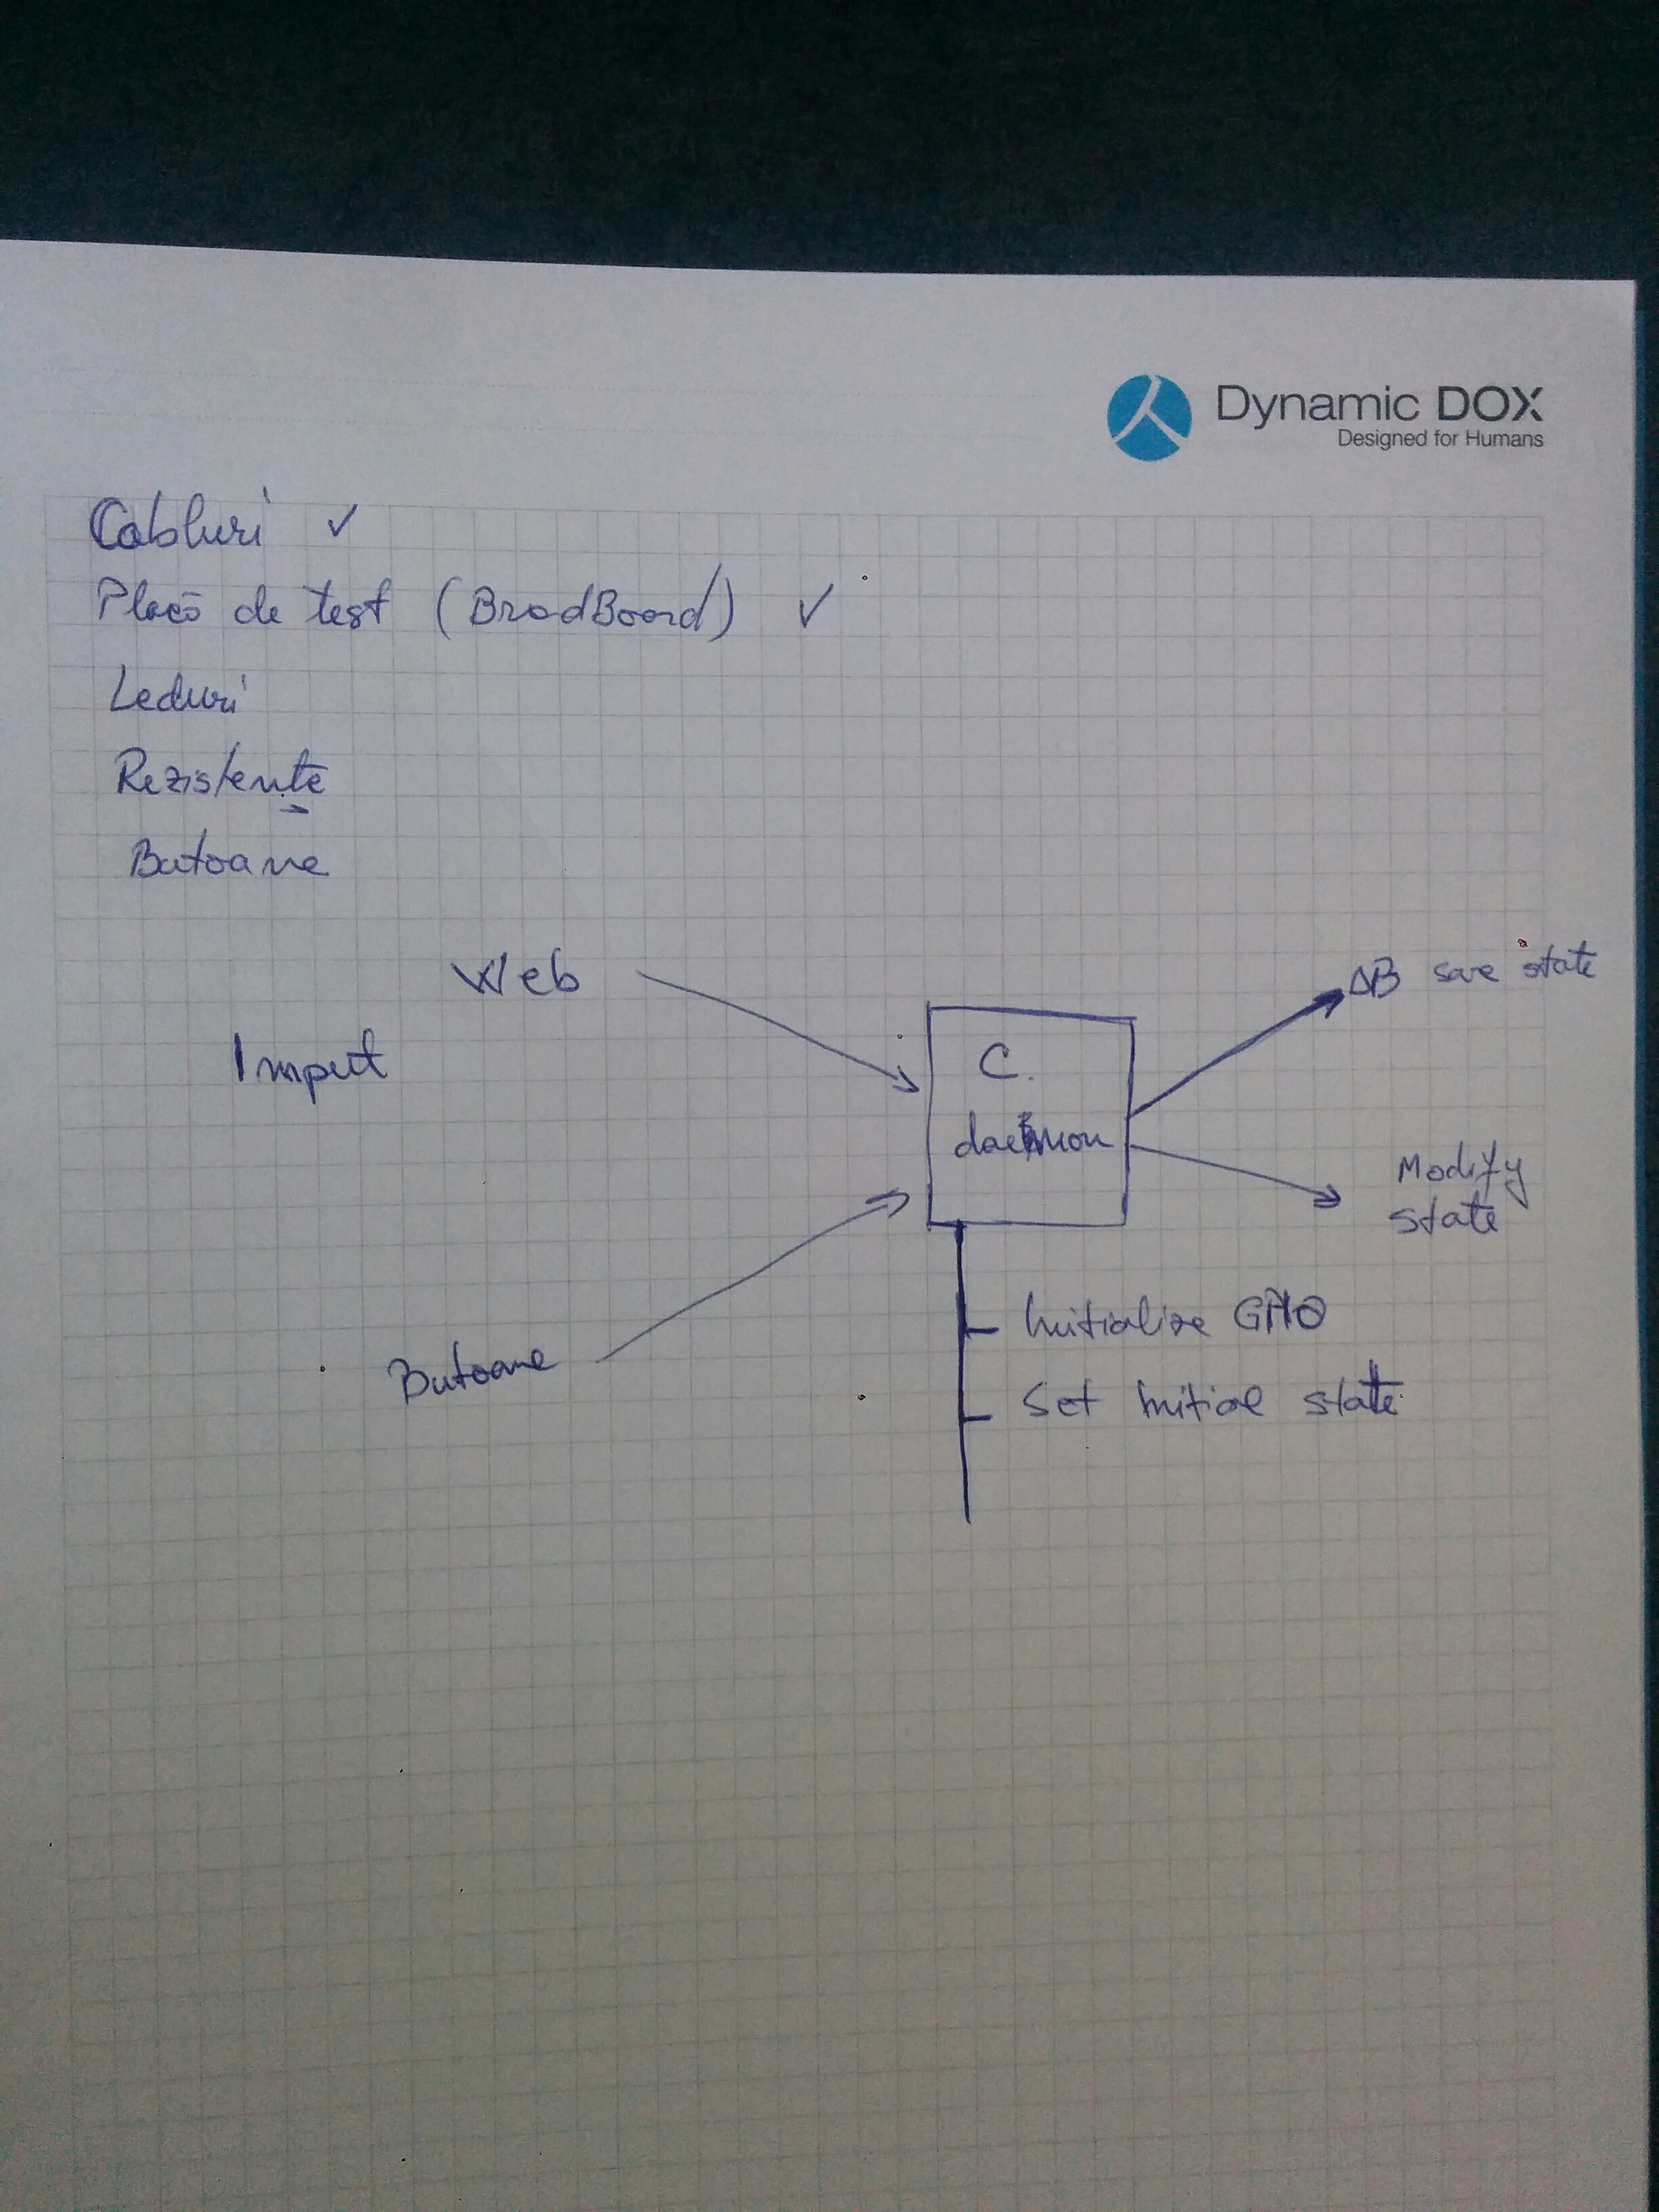 Dynamic DOX
Designed for Humans
Cabluri ✓
Placă de test (BradBoard) ✓
Leduri
Rezistențe
Butoane
Web
Imput
Butoane
C.
daemon
DB save state
Modify
state
Initialize GPIO
Set initial state